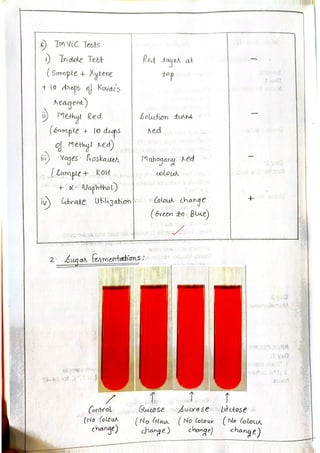 6) IMViC Tests
i) Indole Test Red layer at —
(Sample + Xylene top
+ 10 drops of Kovac's
reagent)
ii) Methyl Red Solution turns —
(Sample + 10 drops red
of Methyl red)
iii) Voges-Proskauer Mahogany red —
(Sample + KOH colour
+ α-Naphthol)
iv) Citrate Utilization Colour change +
(Green to Blue)
2. Sugar Fermentations:
Control Glucose Sucrose Lactose
(No Colour (No Colour (No Colour (No Colour
change) change) change) change)